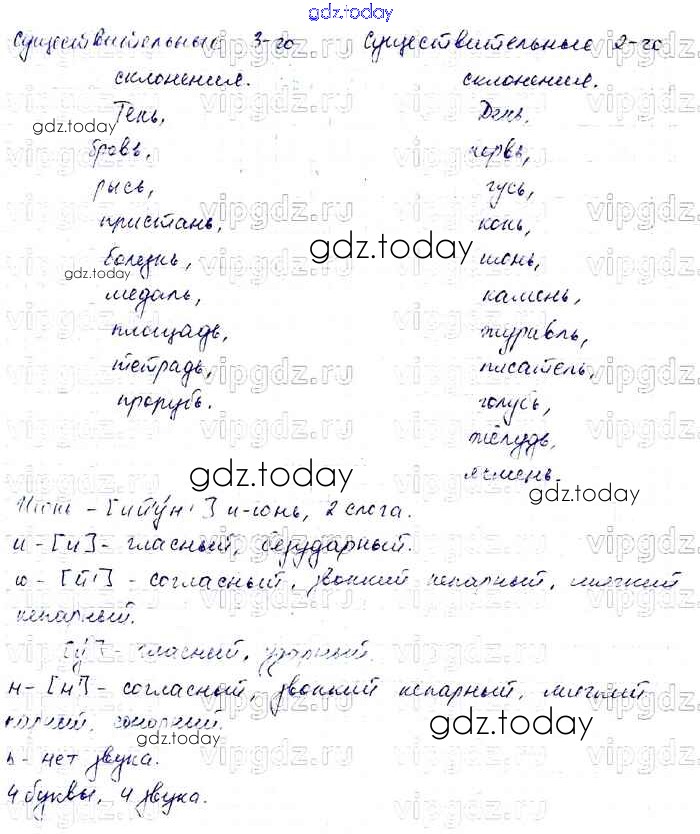 gdz.today
Существительные 3-го
склонения.
Тень,
бровь,
рысь,
пристань,
болезнь,
медаль,
площадь,
тетрадь,
прорубь.
Существительные 2-го
склонения.
День,
червь,
гусь,
конь,
июнь,
камень,
журавль,
писатель,
голубь,
жёлудь,
ячмень.
Июнь - [ийу́н'] и-юнь, 2 слога.
и - [и] - гласный, безударный.
ю - [й'] - согласный, звонкий непарный, мягкий
непарный.
[у́] - гласный, ударный.
н - [н'] - согласный, звонкий непарный, мягкий
парный, сонорный.
ь - нет звука.
4 буквы, 4 звука.
gdz.today
gdz.today
gdz.today
gdz.today
gdz.today
gdz.today
gdz.today
vipgdz.ru